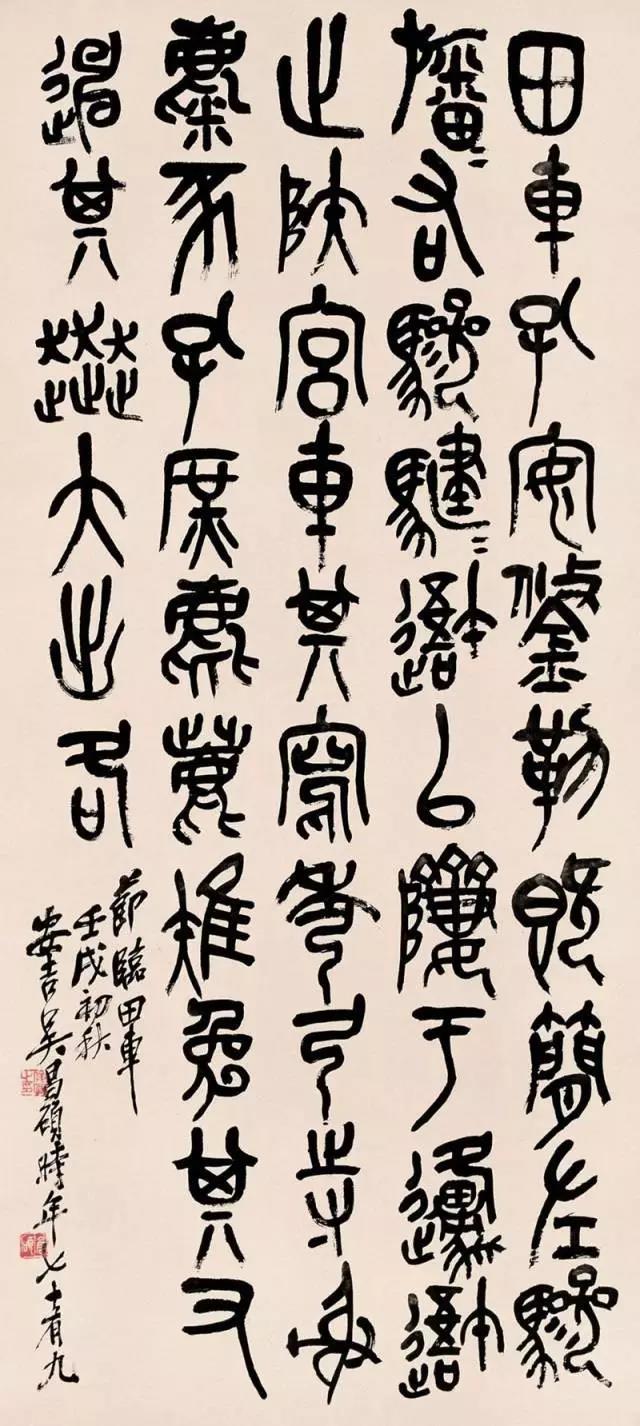 田車孔安鋚勒既簡左驂
旛〻右驂騝〻吾以隮于邍吾
止陝宮車其寫秀弓寺射
麋豕孔庶麀鹿雉兔其又
其大出各
節臨田車
壬戌初秋
安吉吳昌碩時年七十有九